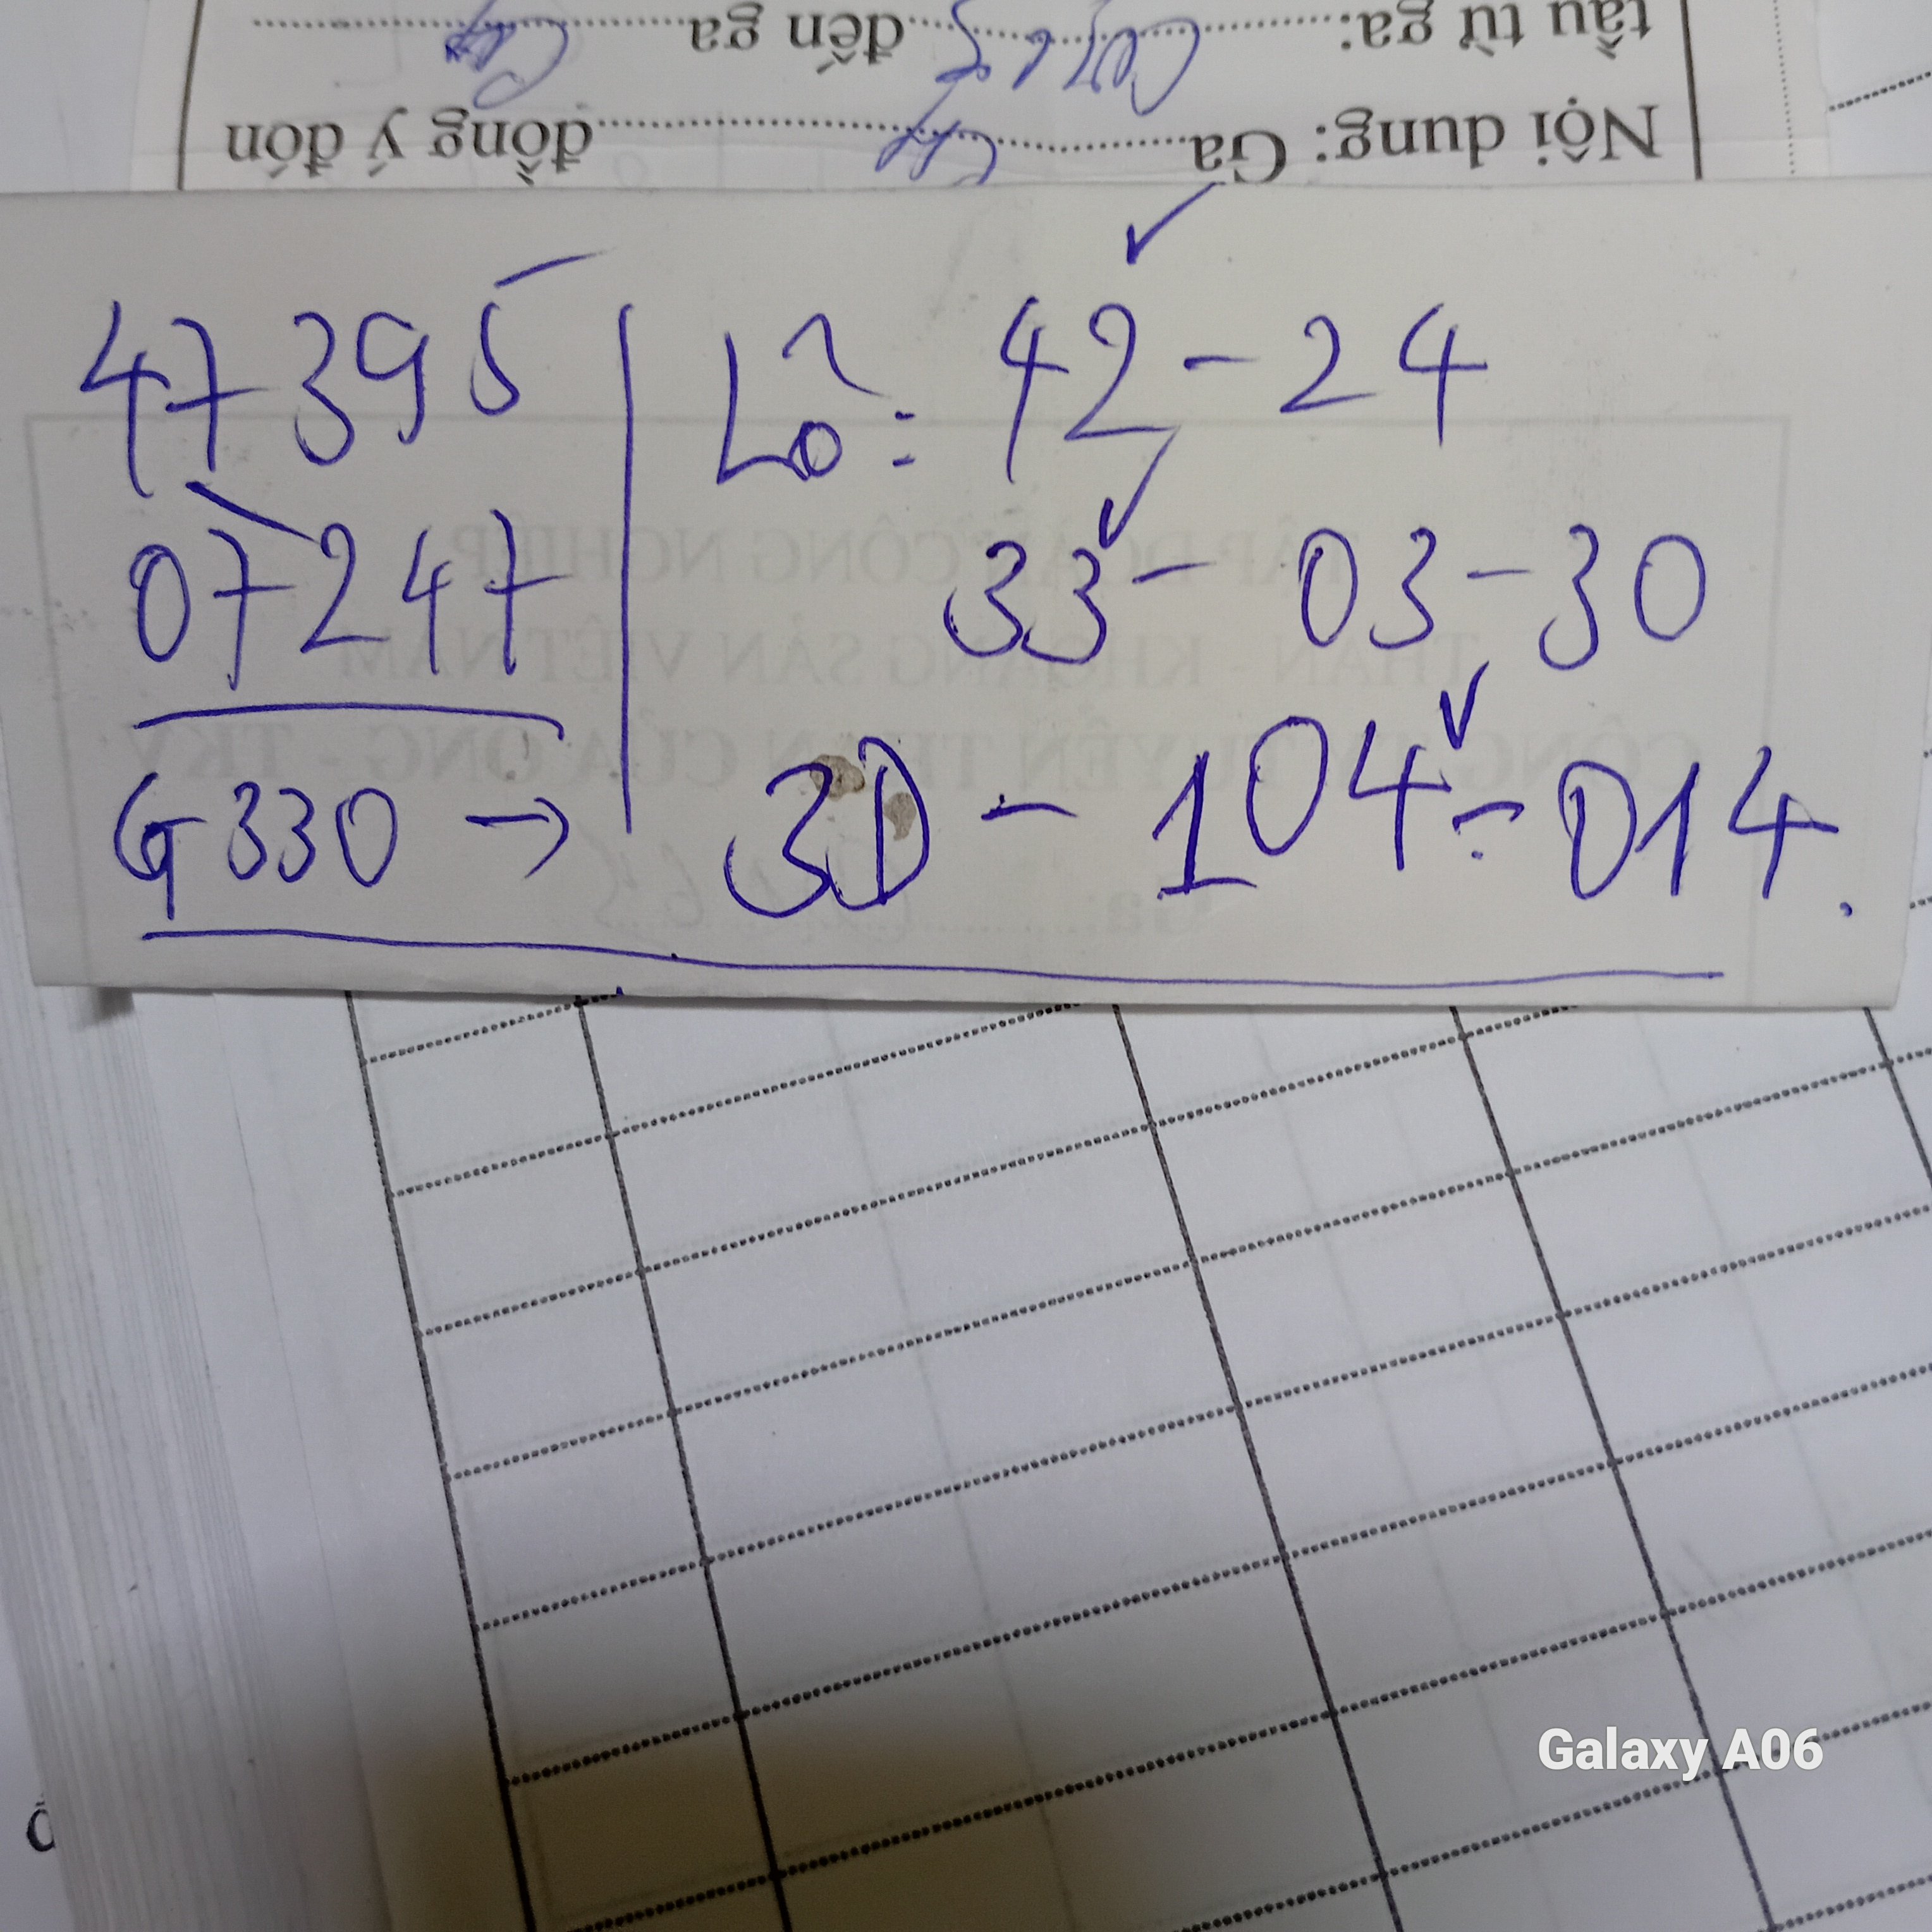 tầu từ ga: đến ga
Nội dung: Ga đồng ý đón
47395
07247
G330 →
Lô: 42 - 24
33 - 03 - 30
3D - 104 - 014.
TẬP ĐOÀN CÔNG NGHIỆP
THAN - KHOÁNG SẢN VIỆT NAM
CÔNG TY TUYỂN THAN CỬA ÔNG - TKV
Ga:
Galaxy A06